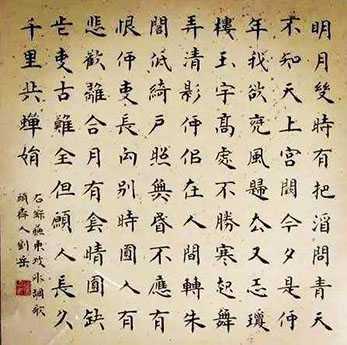 明月幾時有把酒問青天
不知天上宮闕今夕是何
年我欲乘風歸去又恐瓊
樓玉宇高處不勝寒起舞
弄清影何似在人間轉朱
閣低綺戶照無眠不應有
恨何事長向別時圓人有
悲歡離合月有陰晴圓缺
此事古難全但願人長久
千里共嬋娟
蘇軾東坡水調歌
頭齋人劉岳